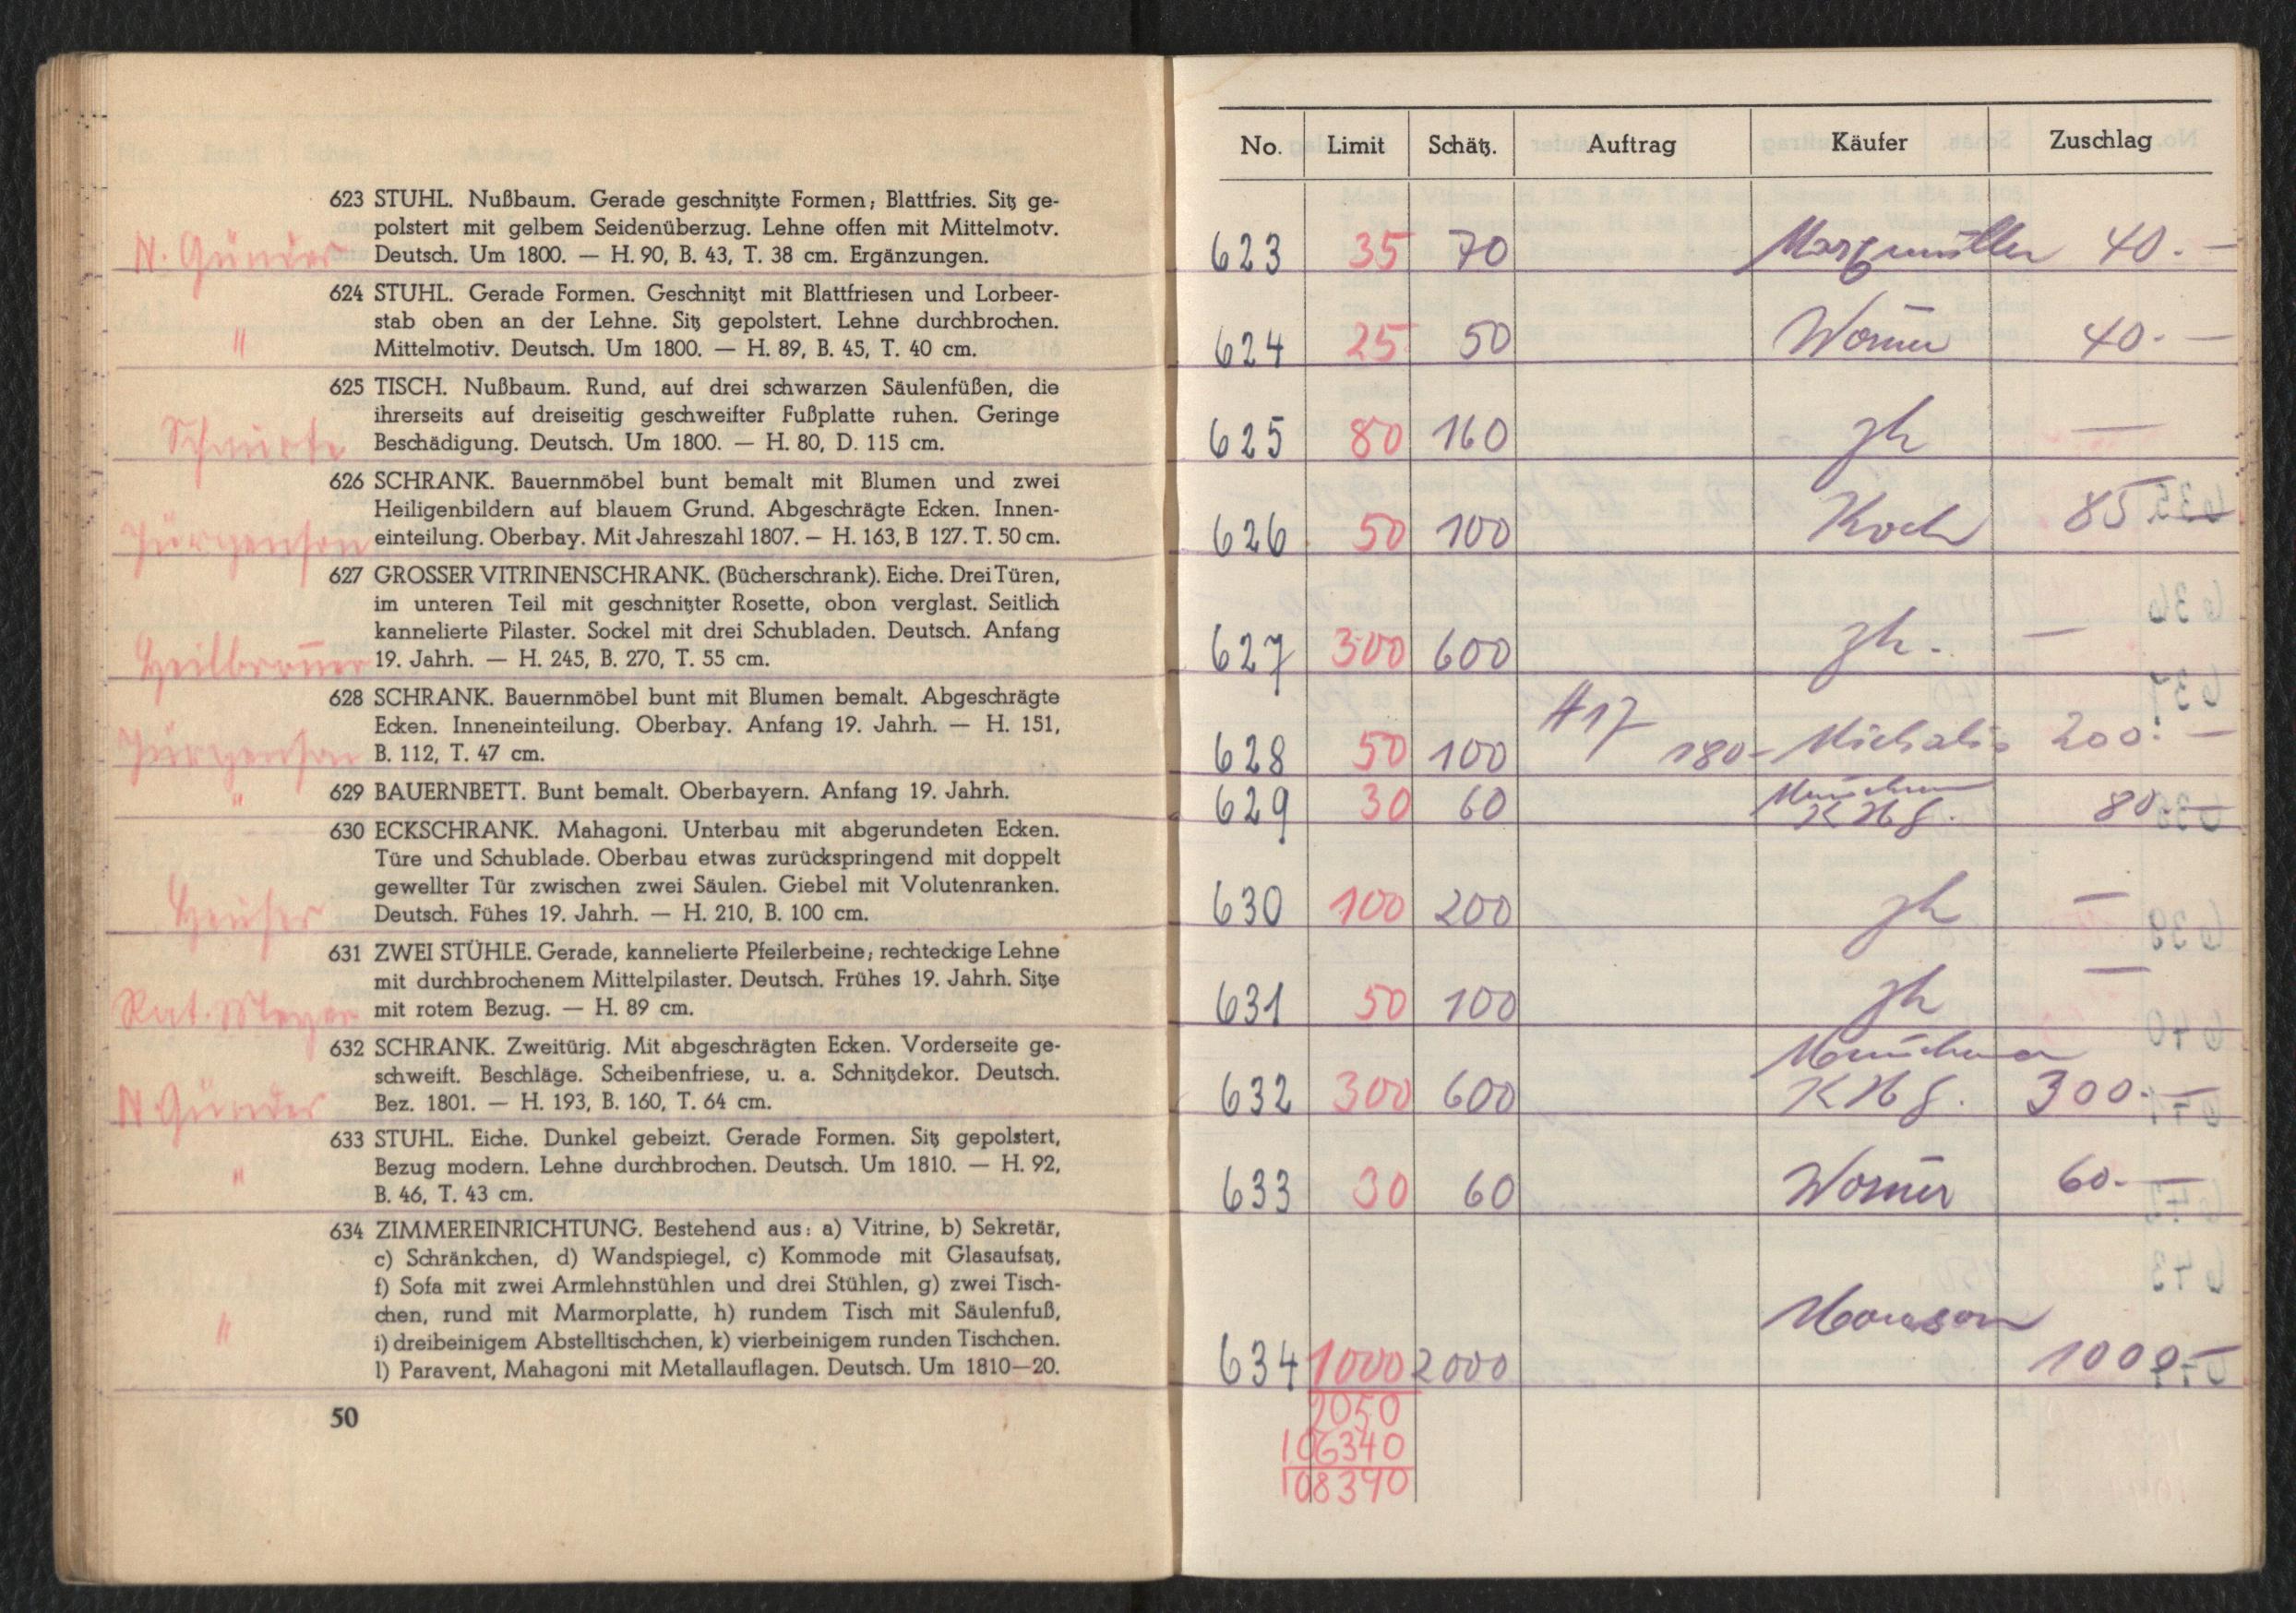 623 STUHL. Nußbaum. Gerade geschnitzte Formen; Blattfries. Sitz ge-
polstert mit gelbem Seidenüberzug. Lehne offen mit Mittelmotv.
N. Günder Deutsch. Um 1800. — H. 90, B. 43, T. 38 cm. Ergänzungen.
624 STUHL. Gerade Formen. Geschnitzt mit Blattfriesen und Lorbeer-
stab oben an der Lehne. Sitz gepolstert. Lehne durchbrochen.
" Mittelmotiv. Deutsch. Um 1800. — H. 89, B. 45, T. 40 cm.
625 TISCH. Nußbaum. Rund, auf drei schwarzen Säulenfüßen, die
ihrerseits auf dreiseitig geschweifter Fußplatte ruhen. Geringe
Beschädigung. Deutsch. Um 1800. — H. 80, D. 115 cm.
626 SCHRANK. Bauernmöbel bunt bemalt mit Blumen und zwei
Heiligenbildern auf blauem Grund. Abgeschrägte Ecken. Innen-
Jürgenson einteilung. Oberbay. Mit Jahreszahl 1807. — H. 163, B 127. T. 50 cm.
627 GROSSER VITRINENSCHRANK. (Bücherschrank). Eiche. Drei Türen,
im unteren Teil mit geschnitzter Rosette, obon verglast. Seitlich
kannelierte Pilaster. Sockel mit drei Schubladen. Deutsch. Anfang
Heilbronner 19. Jahrh. — H. 245, B. 270, T. 55 cm.
628 SCHRANK. Bauernmöbel bunt mit Blumen bemalt. Abgeschrägte
Ecken. Inneneinteilung. Oberbay. Anfang 19. Jahrh. — H. 151,
Jürgenson B. 112, T. 47 cm.
" 629 BAUERNBETT. Bunt bemalt. Oberbayern. Anfang 19. Jahrh.
630 ECKSCHRANK. Mahagoni. Unterbau mit abgerundeten Ecken.
Türe und Schublade. Oberbau etwas zurückspringend mit doppelt
gewellter Tür zwischen zwei Säulen. Giebel mit Volutenranken.
Heuser Deutsch. Fühes 19. Jahrh. — H. 210, B. 100 cm.
631 ZWEI STÜHLE. Gerade, kannelierte Pfeilerbeine; rechteckige Lehne
mit durchbrochenem Mittelpilaster. Deutsch. Frühes 19. Jahrh. Sitze
Nat. Meyer mit rotem Bezug. — H. 89 cm.
632 SCHRANK. Zweitürig. Mit abgeschrägten Ecken. Vorderseite ge-
schweift. Beschläge. Scheibenfriese, u. a. Schnitzdekor. Deutsch.
N Günder Bez. 1801. — H. 193, B. 160, T. 64 cm.
633 STUHL. Eiche. Dunkel gebeizt. Gerade Formen. Sitz gepolstert,
" Bezug modern. Lehne durchbrochen. Deutsch. Um 1810. — H. 92,
B. 46, T. 43 cm.
634 ZIMMEREINRICHTUNG. Bestehend aus: a) Vitrine, b) Sekretär,
c) Schränkchen, d) Wandspiegel, c) Kommode mit Glasaufsatz,
f) Sofa mit zwei Armlehnstühlen und drei Stühlen, g) zwei Tisch-
chen, rund mit Marmorplatte, h) rundem Tisch mit Säulenfuß,
" i) dreibeinigem Abstelltischchen, k) vierbeinigem runden Tischchen.
l) Paravent, Mahagoni mit Metallauflagen. Deutsch. Um 1810—20.
50
No. Limit Schätz. Auftrag Käufer Zuschlag
623 35 70 40.—
624 25 50 Worner 40.—
625 80 160 zh —
626 50 100 Koch 85.—
627 300 600 zh. —
628 50 100 #17 180- Michalis 200.—
629 30 60 Münchner KHG. 80.—
630 100 200 zh —
631 50 100 zh —
632 300 600 Münchner KHG. 300.—
633 30 60 Worner 60.—
634 1000 2000 1000.—
2050
106340
108390